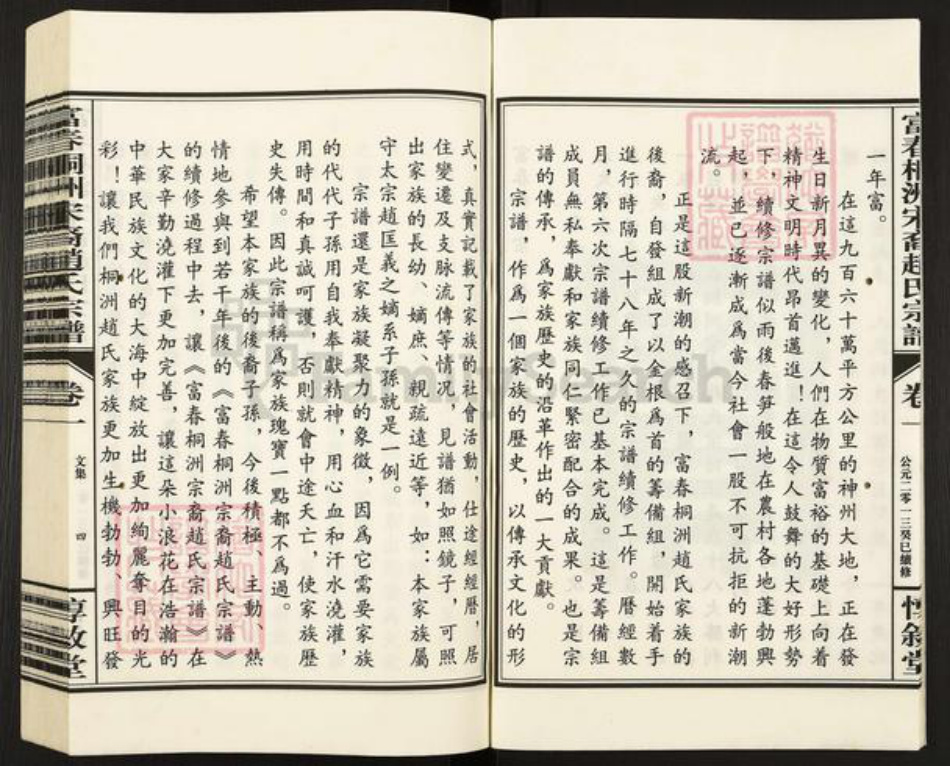 一年富。
在這九百六十萬平方公里的神州大地，正在發
生日新月異的變化，人們在物質富裕的基礎上向着
精神文明時代昂首邁進！在這令人鼓舞的大好形勢
下，續修宗譜似雨後春笋般地在農村各地蓬勃興
起，並已逐漸成爲當今社會一股不可抗拒的新潮
流。
正是這股新潮的感召下，富春桐洲趙氏家族的
後裔，自發組成了以金根爲首的籌備組，開始着手
進行時隔七十八年之久的宗譜續修工作。曆經數
月，第六次宗譜續修工作已基本完成。這是籌備組
成員無私奉獻和家族同仁緊密配合的成果。也是宗
譜的傳承，爲家族歷史的沿革作出的一大貢獻。
宗譜，作爲一個家族的歷史，以傳承文化的形
富春桐洲宋裔趙氏宗譜
卷一
公元二零一三癸巳續修
惇敘堂
式，真實記載了家族的社會活動，仕途經曆，居
住變遷及支脈流傳等情况，見譜猶如照鏡子，可照
出家族的長幼、嫡庶、親疏遠近等，如：本家族屬
守太宗趙匡義之嫡系子孫就是一例。
宗譜還是家族凝聚力的象徵，因爲它需要家族
的代代子孫用自我奉獻精神，用心血和汗水澆灌，
用時間和真誠呵護，否則就會中途夭亡，使家族歷
史失傳。因此宗譜稱爲家族瑰寶一點都不爲過。
希望本家族的後裔子孫，今後積極、主動、熱
情地參與到若干年後的《富春桐洲宗裔趙氏宗譜》
的續修過程中去，讓《富春桐洲宗裔趙氏宗譜》在
大家辛勤澆灌下更加完善，讓這朵小浪花在浩瀚的
中華民族文化的大海中綻放出更加絢麗奪目的光
彩！讓我們桐洲趙氏家族更加生機勃勃、興旺發
富春桐洲宋裔趙氏宗譜
卷一
文集
四
惇敘堂
FamilySearch